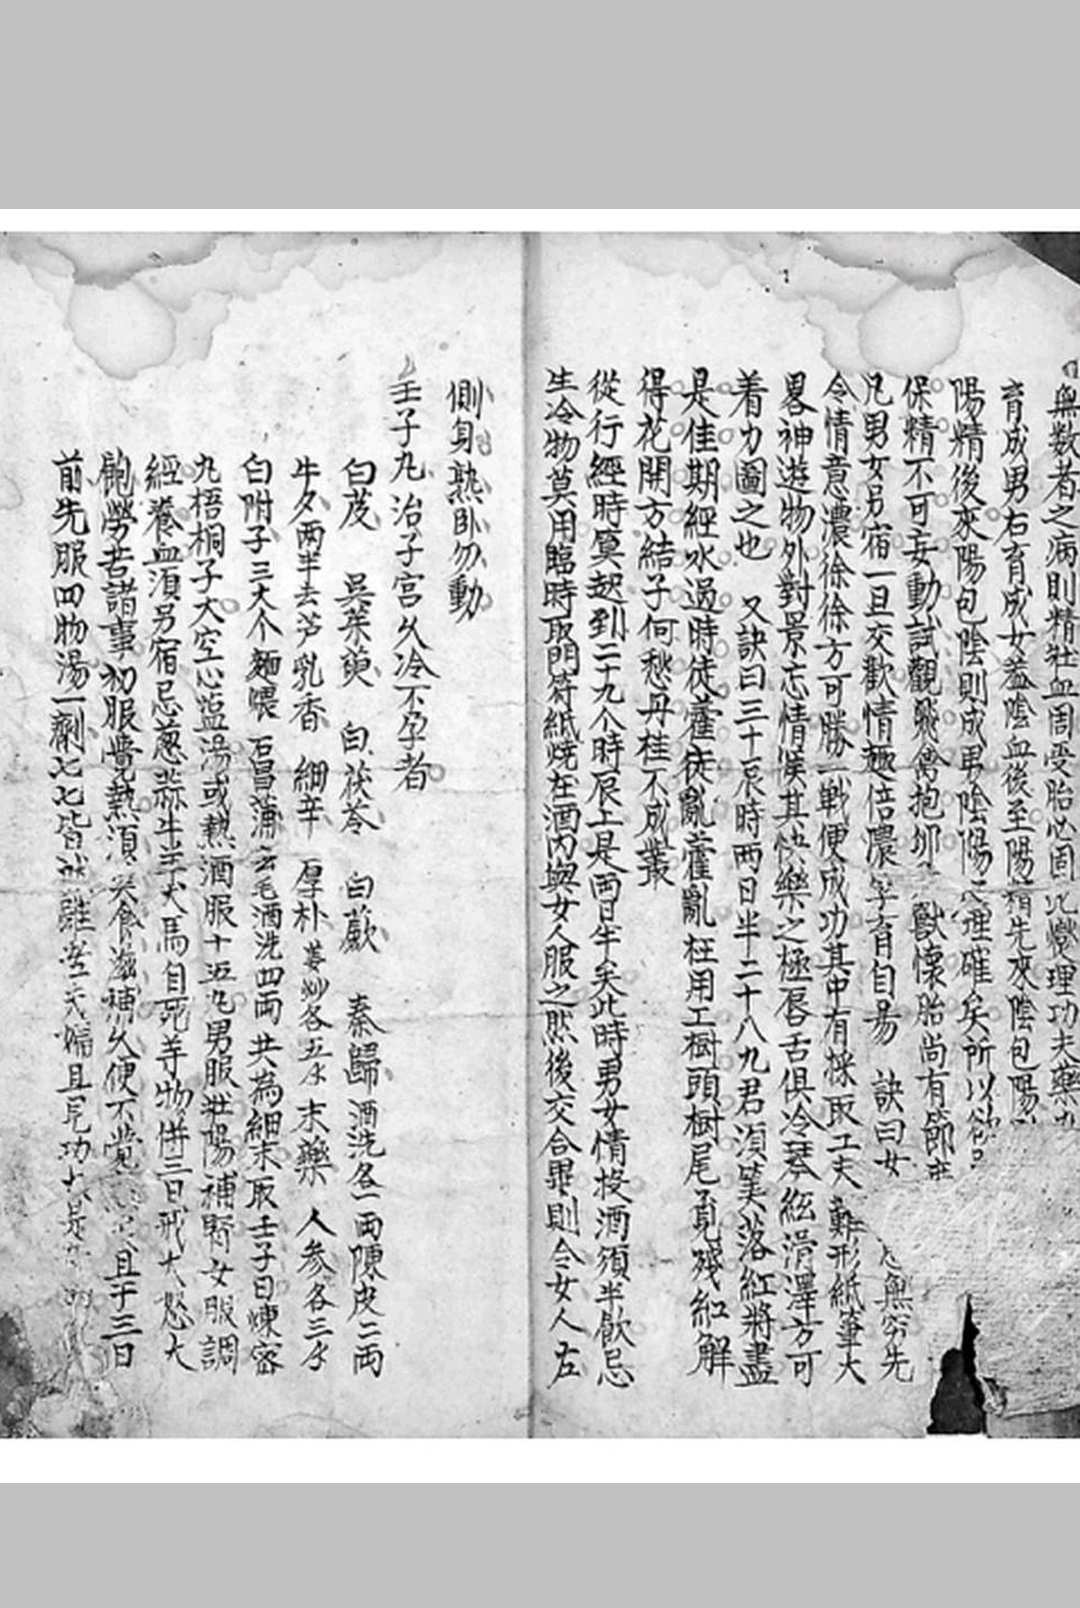 無数者之病則精壮血周受胎必固此燮理功夫藥
育成男右育成女盖陰血後至陽精先來陰包陽
陽精後來陽包陰則成男陰陽之理確矣所以
保精不可妄動試觀飛禽抱卵獸懷胎尚有節
凡男女另宿一旦交歡情趣倍濃孕育自易 訣曰女無窮先
令情意濃徐徐方可勝一戰便成功其中有採取工夫難形紙筆大
畧神遊物外對景忘情候其快樂之極唇舌俱冷琴絃滑澤方可
着力圖之也 又訣曰三十辰時兩日半二十八九君須筭落紅將盡
是佳期經水過時徒藿亂藿亂枉用工樹頭樹尾覓殘紅解
得花開方結子何愁丹桂不成叢
從行經時筭起到二十九个時辰上是兩日半矣此時男女情投酒須半飲忌
生冷物莫用臨時取門符紙燒在酒内與女人服之然後交合畢則令女人左
側身熟卧勿動
壬子丸治子宫久冷不孕者
白芨 吳茱萸 白茯苓 白蘞 秦歸酒洗各一兩陳皮二兩
牛夕两半去芦乳香 細辛 厚朴姜炒各五水末藥 人参各三水
白附子三大个麵煨 石昌蒲去毛酒洗四両共為細末取壬子日煉宻
丸梧桐子大空心盐湯或熱酒服十五丸男服壮陽補腎女服調
經養血須另宿忌蔥蒜牛羊犬馬自死等物併三日戒大怒大
飽勞苦諸事初服覺熱須美食滋補久便不覺且于三日
前先服四物湯一劑雖苦夫婦且見功